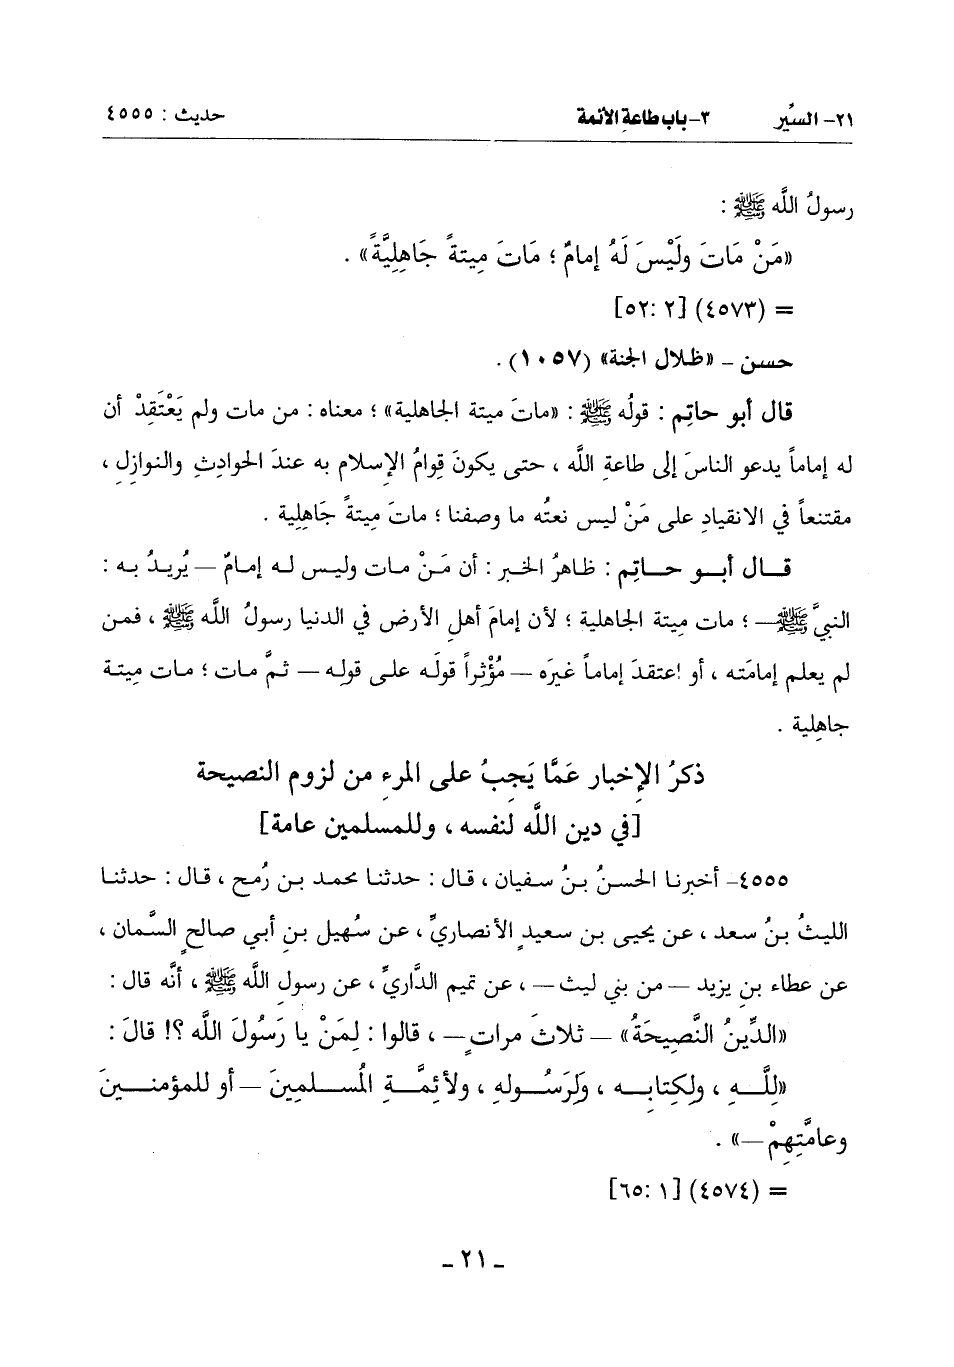 ٢١- السِّير ٣- باب طاعة الأئمة حديث : ٤٥٥٥
رسولُ اللَّه ﷺ :
«مَنْ مَاتَ ولَيْسَ لَهُ إمامٌ ؛ مَاتَ مِيتةً جَاهِلِيَّةً» .
= (٤٥٧٣) [٢ :٥٢]
حسن – «ظلال الجنة» (١٠٥٧) .
قال أبو حاتِم : قولُه ﷺ : «ماتَ ميتة الجاهلية» ؛ معناه : من مات ولم يَعْتَقِدْ أن
له إماماً يدعو الناسَ إلى طاعةِ اللَّه ، حتى يكونَ قِوامُ الإسلام به عندَ الحوادِثِ والنوازِلِ ،
مقتنعاً في الانقيادِ على مَنْ ليس نعتُه ما وصفنا ؛ ماتَ مِيتةً جَاهِلِية .
قال أبو حاتِم : ظاهرُ الخبر : أن مَنْ مات وليس له إمامٌ – يُريدُ به :
النبيَّ ﷺ – ؛ مات مِيتة الجاهلية ؛ لأن إمامَ أهلِ الأرض في الدنيا رسولُ اللَّه ﷺ ، فمن
لم يعلم إمامَته ، أو اعتقدَ إماماً غيرَه – مُؤْثِراً قولَه على قولِه – ثمَّ مات ؛ مات مِيتة
جاهِلية .
ذكرُ الإخبار عَمَّا يَجِبُ على المرءِ من لزوم النصيحة
[في دين اللَّه لنفسه ، وللمسلمين عامة]
٤٥٥٥- أخبرنا الحسنُ بنُ سفيان ، قال : حدثنا محمد بن رُمح ، قال : حدثنا
الليثُ بنُ سعد ، عن يحيى بن سعيدٍ الأنصاريِّ ، عن سُهيل بنِ أبي صالحٍ السَّمان ،
عن عطاء بنِ يزيد – من بني ليث – ، عن تميم الدَّاريِّ ، عن رسول اللَّه ﷺ ، أنَّه قال :
«الدِّينُ النَّصِيحَةُ» – ثلاثَ مراتٍ – ، قالوا : لِمَنْ يا رَسُولَ اللَّه ؟! قالَ :
«لِلَّهِ ، ولِكِتابِه ، ولِرَسُولِهِ ، ولأئِمَّةِ المُسلمِينَ – أو للمؤمنينَ
وعامَّتِهِمْ –» .
= (٤٥٧٤) [١ :٦٥]
– ٢١ –